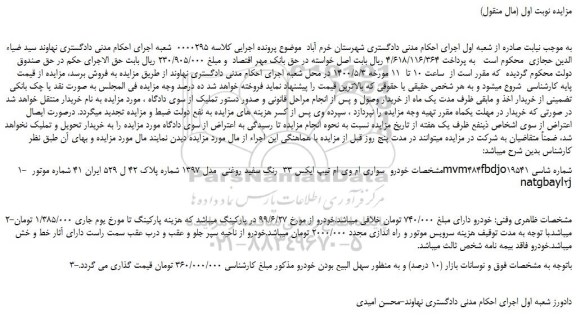 مزایده نوبت اول (مال منقول)
به موجب نیابت صادره از شعبه اول اجرای احکام مدنی دادگستری شهرستان خرم آباد موضوع پرونده اجرایی کلاسه ۰۰۰۰۲۹۵ شعبه اجرای احکام مدنی دادگستری نهاوند سید ضیاء
الدین حجازی محکوم است به پرداخت ۴/۶۱۸/۱۱۶/۳۶۴ ریال بابت اصل خواسته در حق بانک مهر اقتصاد و مبلغ ۲۳۰/۹۰۵/۰۰۰ ریال بابت حق الاجرای حکم در حق صندوق
دولت محکوم گردیده که مقرر است از ساعت ۱۰ تا ۱۱ مورخه ۱۴۰۰/۵/۳ در محل شعبه اجرای احکام مدنی دادگستری نهاوند از طریق مزایده به فروش برسد، مزایده از قیمت
پایه کارشناسی شروع میشود و به هر شخص حقیقی یا حقوقی که بالاترین قیمت را پیشنهاد نماید فروخته خواهد شد ده درصد وجه مزایده فی المجلس به صورت نقد یا چک بانکی
تضمینی از خریدار اخذ و مابقی ظرف مدت یک ماه از خریدار وصول و پس از انجام مراحل قانونی و صدور دستور تملیک از سوی دادگاه ، مورد مزایده به نام خریدار منتقل خواهد شد
در صورتی که خریدار در مهلت یکماه مقرر تهیه وجه مزایده را نپردازد ، سپرده وی پس از کسر هزینه های مزایده به نفع دولت ضبط و مزایده تجدید میگردد. درصورت ایصال
اعتراض از سوی اشخاص ذینفع ظرف یک هفته از تاریخ مزایده نسبت به نحوه انجام مزایده تا رسیدگی به اعتراض از سوی دادگاه مورد مزایده را به خریدار تحویل و تملیک نخواهد
شد، ضمناً متقاضیان به شرکت در مزایده میتوانند در مدت پنج روز قبل از مزایده با هماهنگی این اجراء از مال مورد مزایده دیدن نمایند مال مورد مزایده و بهای آن طبق نظر
کارشناس بدین شرح میباشد:
شماره شاسی mvm۴۸۴fbdj۰۱۹۵۴۱مشخصات خودرو سواری ام وی ام تیپ ایکس ۳۳ رنگ سفید روغنی مدل ۱۳۹۷ شماره پلاک ۴۲ ل ۵۲۹ ایران ۴۱ شماره موتور ۱-
مشخصات ظاهری وفنی: خودرو دارای مبلغ ۷۴۰/۰۰۰ تومان خلافی میباشد.خودرو از مورخ ۹۹/۶/۳۷ در پارکینگ میباشد که هزینه پارکینگ تا مورخ یوم جاری ۱/۳۸۵/۰۰۰ تومان-۲
میباشد.با توجه به مدت توقیف هزینه سرویس موتور و راه اندازی مجدد ۲۰۰۰/۰۰۰ تومان میباشد.خودرو از ناحیه سپر جلو و عقب و درب عقب سمت راست دارای آثار خط و خش
میباشد.خودرو فاقد بیمه نامه شخص ثالث میباشد.
باتوجه به مشخصات فوق و نوسانات بازار (۱۰ درصد) و به منظور سهل البیع بودن خودرو مذکور مبلغ کارشناسی ۳۶۰/۰۰۰/۰۰۰ تومان قیمت گذاری می گردد.-۳
دادورز شعبه اول اجرای احکام مدنی دادگستری نهاوند-محسن امیدی
۰۲۱-۸۸۳۴۹۶۷۰-۵